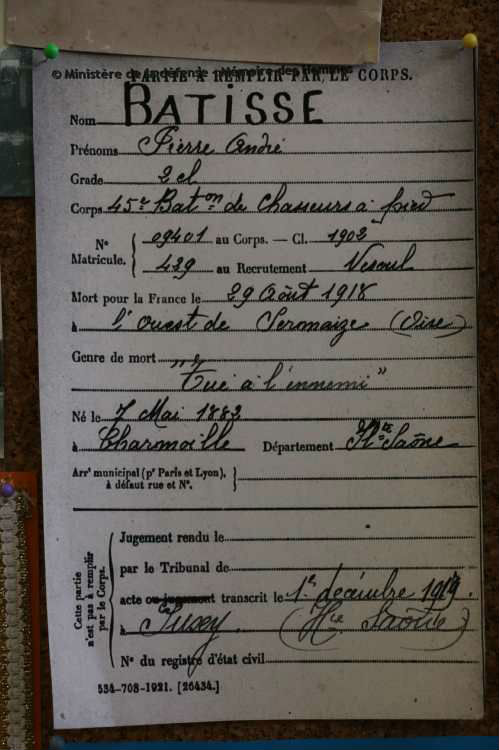 PARTIE À REMPLIR PAR LE CORPS.
© Ministère de la défense - Mémoire des Hommes
Nom BATISSE
Prénoms Pierre André
Grade 2 cl
Corps 45e Baton de Chasseurs à pied
N° Matricule. { 09401 au Corps. — Cl. 1902
439 au Recrutement Vesoul
Mort pour la France le 29 Août 1918
à l'ouest de Sermaize (Oise)
Genre de mort
"Tué à l'ennemi"
Né le 7 Mai 1882
à Charmoille Département Hte Saône
Arr' municipal (pr Paris et Lyon), }
à défaut rue et N°.
Cette partie n'est pas à remplir par le Corps.
Jugement rendu le
par le Tribunal de
acte ou jugement transcrit le 1er décembre 1919.
à (Hte Saône)
N° du registre d'état civil
534-708-1921. [26434.]